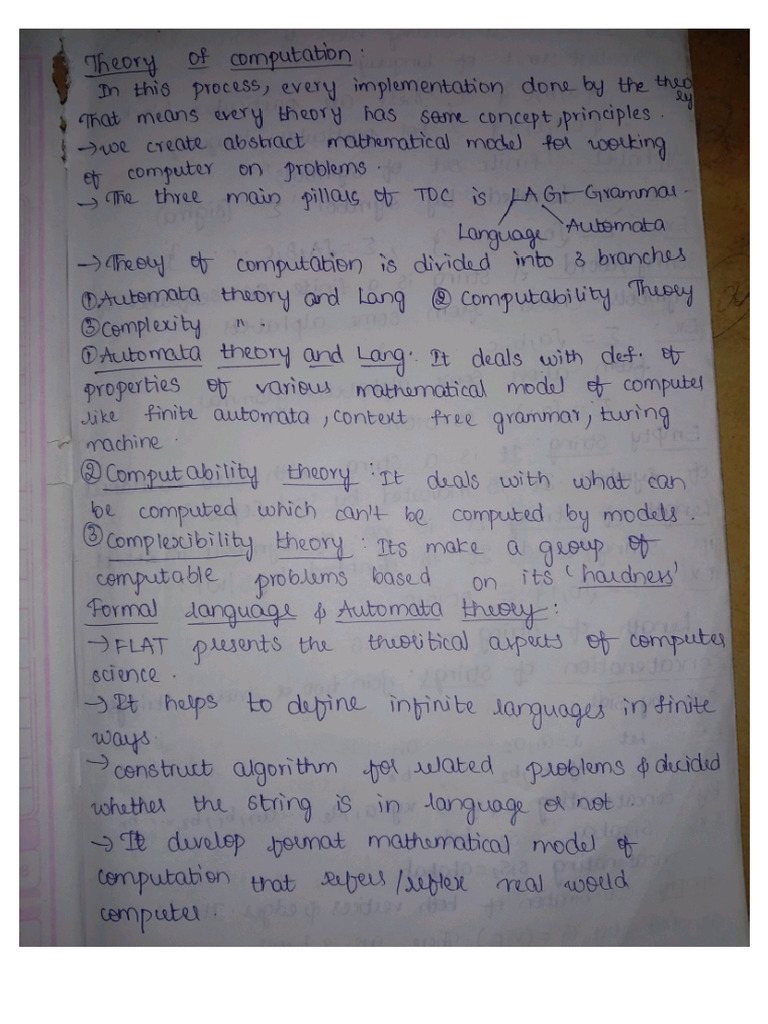 Theory of computation:
In this process, every implementation done by the theo
ry
That means every theory has some concept, principles.
→ we create abstract mathematical model for working
of computer on problems.
→ The three main pillars of TOC is LAG - Grammar.
Language Automata
→ Theory of computation is divided into 3 branches
① Automata theory and Lang ② computability Theory
③ complexity ".
① Automata theory and Lang: It deals with def. of
properties of various mathematical model of computer
like finite automata, context free grammar, turing
machine.
② Computability theory: It deals with what can
be computed which can't be computed by models.
③ Complexibility theory: Its make a group of
computable problems based on its 'hardness'
Formal language & Automata theory:
→ FLAT presents the theoritical aspects of computer
science.
→ It helps to define infinite languages in finite
ways.
→ construct algorithm for related problems & decided
whether the string is in language or not
→ It develop format mathematical model of
computation that refers/reflex real world
computer.